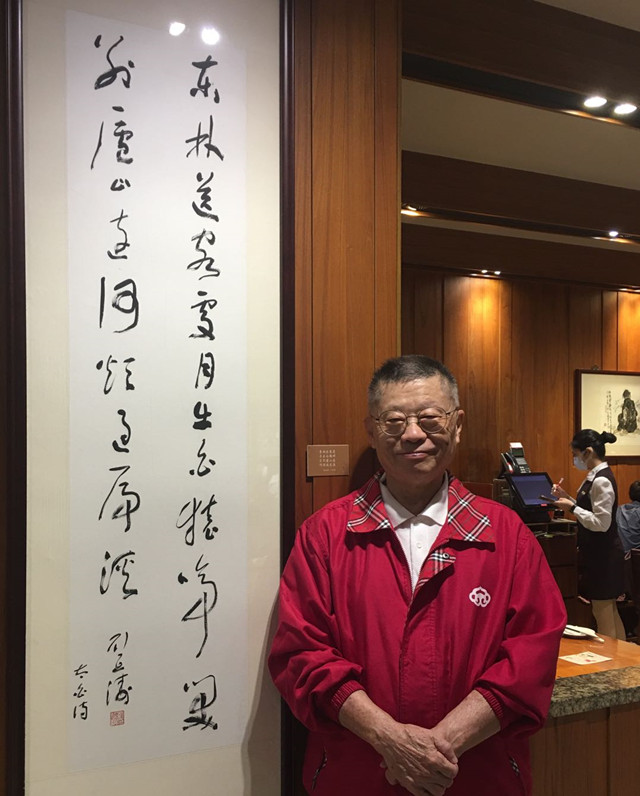 東林送客處月出白猿啼笑
別廬山遠何煩過虎溪
太白詩